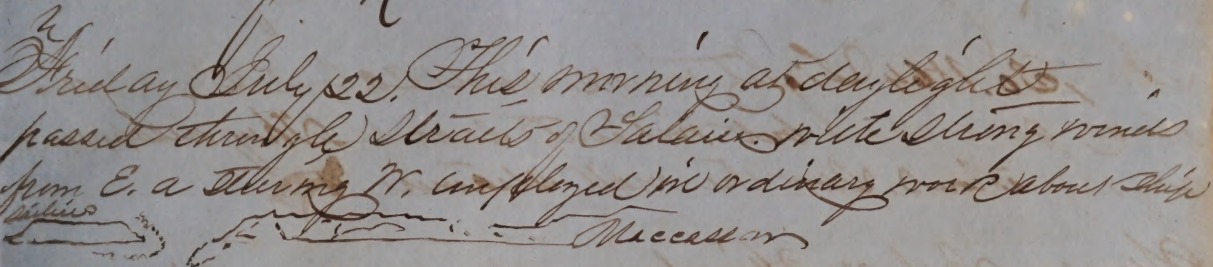 Friday July 22. This morning at daylight
passed through Straits of Salaier with strong winds
from E. a steering W. employed in ordinary work about ship
Maccassar